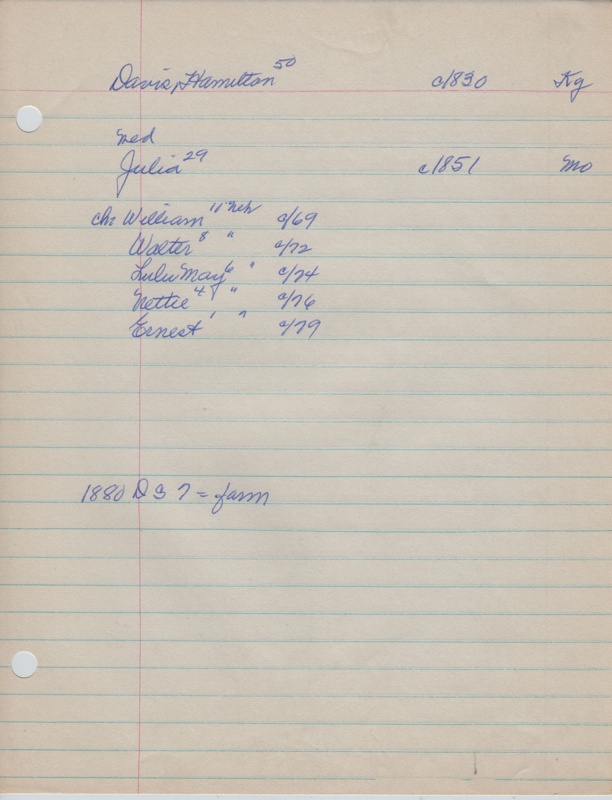 Davis, Hamilton 50 c/1830 Ky
med
Julia 29 c/1851 Mo
ch: William 11 neb c/69
Walter 8 " c/72
Lulu May 6 " c/74
Nettie 4 " c/76
Ernest 1 " c/79
1880 D S 7 = farm